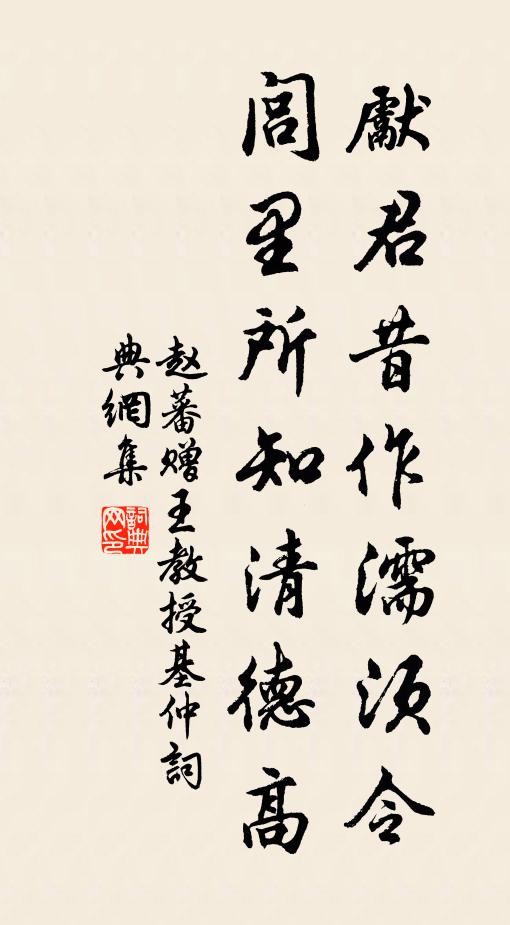 獻君昔作濡須令
閭里所知清德高
赵蕃赠王教授基仲詞
典網集
詞典
网印